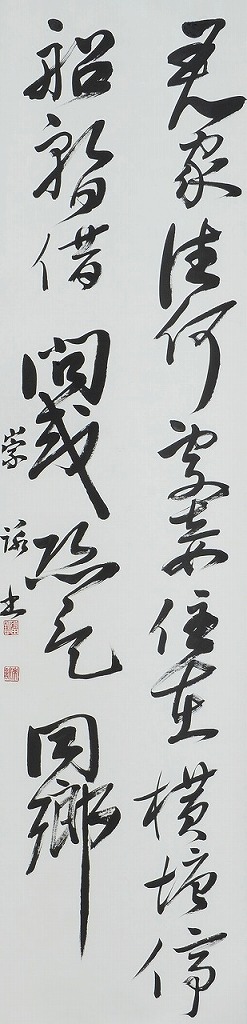 君家住何處妾住在橫塘停
船暫借問或恐是同鄉
崇詠書